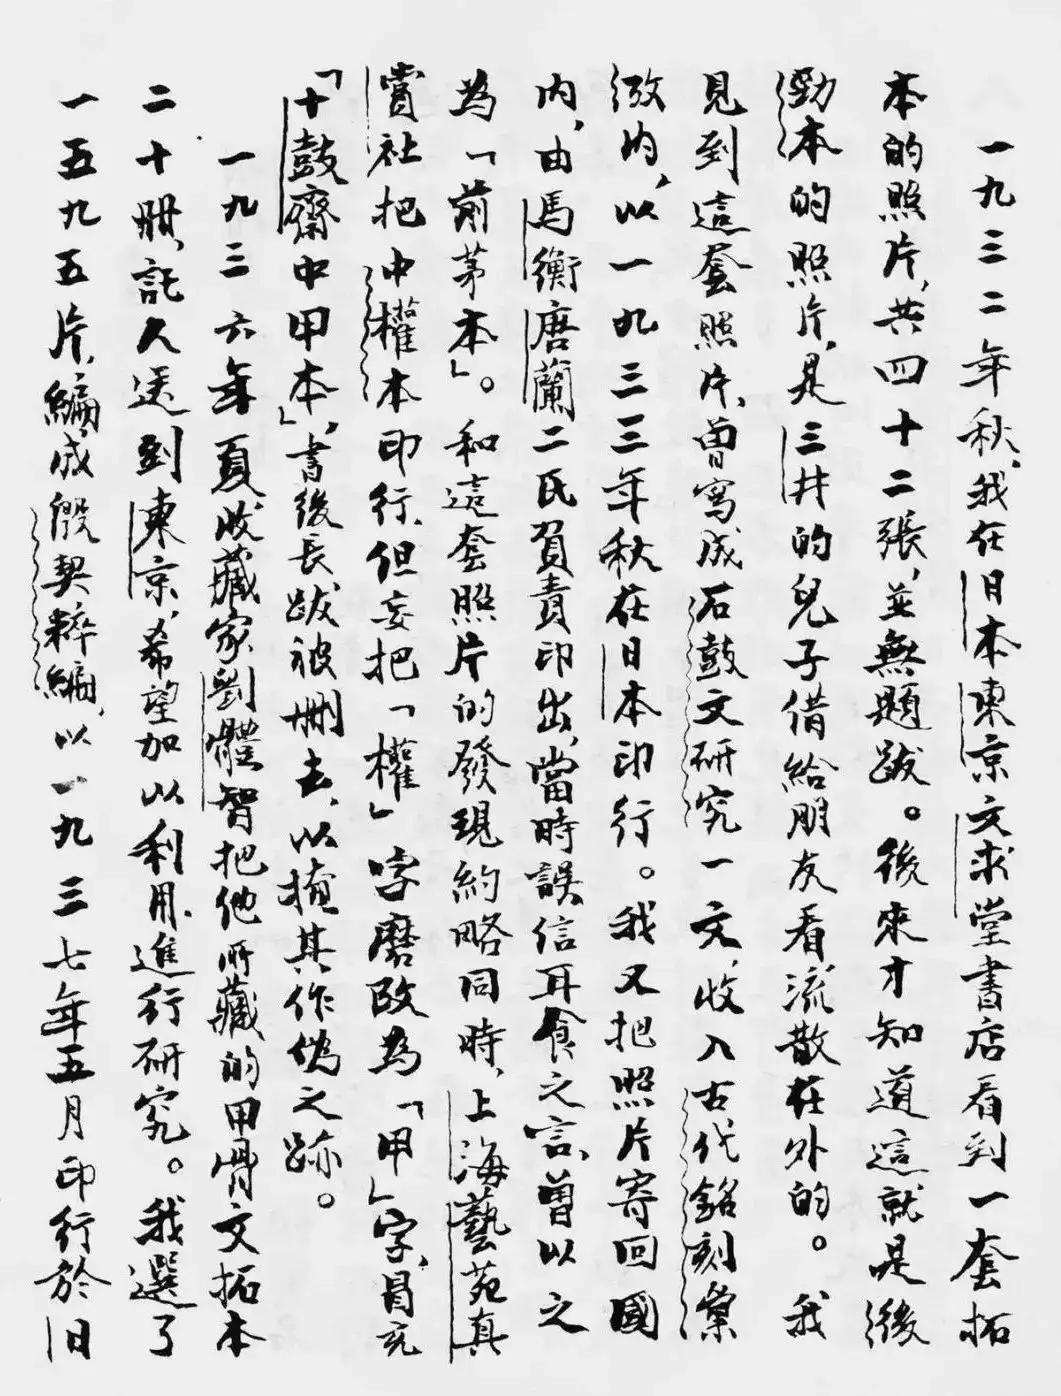 一九三二年秋，我在日本東京文求堂書店看到一套拓
本的照片，共四十二張，並無題跋。後來才知道這就是後
勁本的照片，是三井的兒子借給朋友看，流散在外的。我
見到這套照片，曾寫成石鼓文研究一文，收入古代銘刻彙
攷內，以一九三三年秋在日本印行。我又把照片寄回國
內，由馬衡唐蘭二氏負責印出，當時誤信耳食之言，曾以之
為「前茅本」。和這套照片的發現約略同時，上海藝苑真
賞社把中權本印行，但妄把「權」字磨改為「甲」字，冒充
「十鼓齋中甲本」，書後長跋被刪去，以掩其作偽之跡。
一九三六年夏收藏家劉體智把他所藏的甲骨文拓本
二十冊，託人送到東京，希望加以利用，進行研究。我選了
一五九五片，編成殷契粹編，以一九三七年五月印行於日